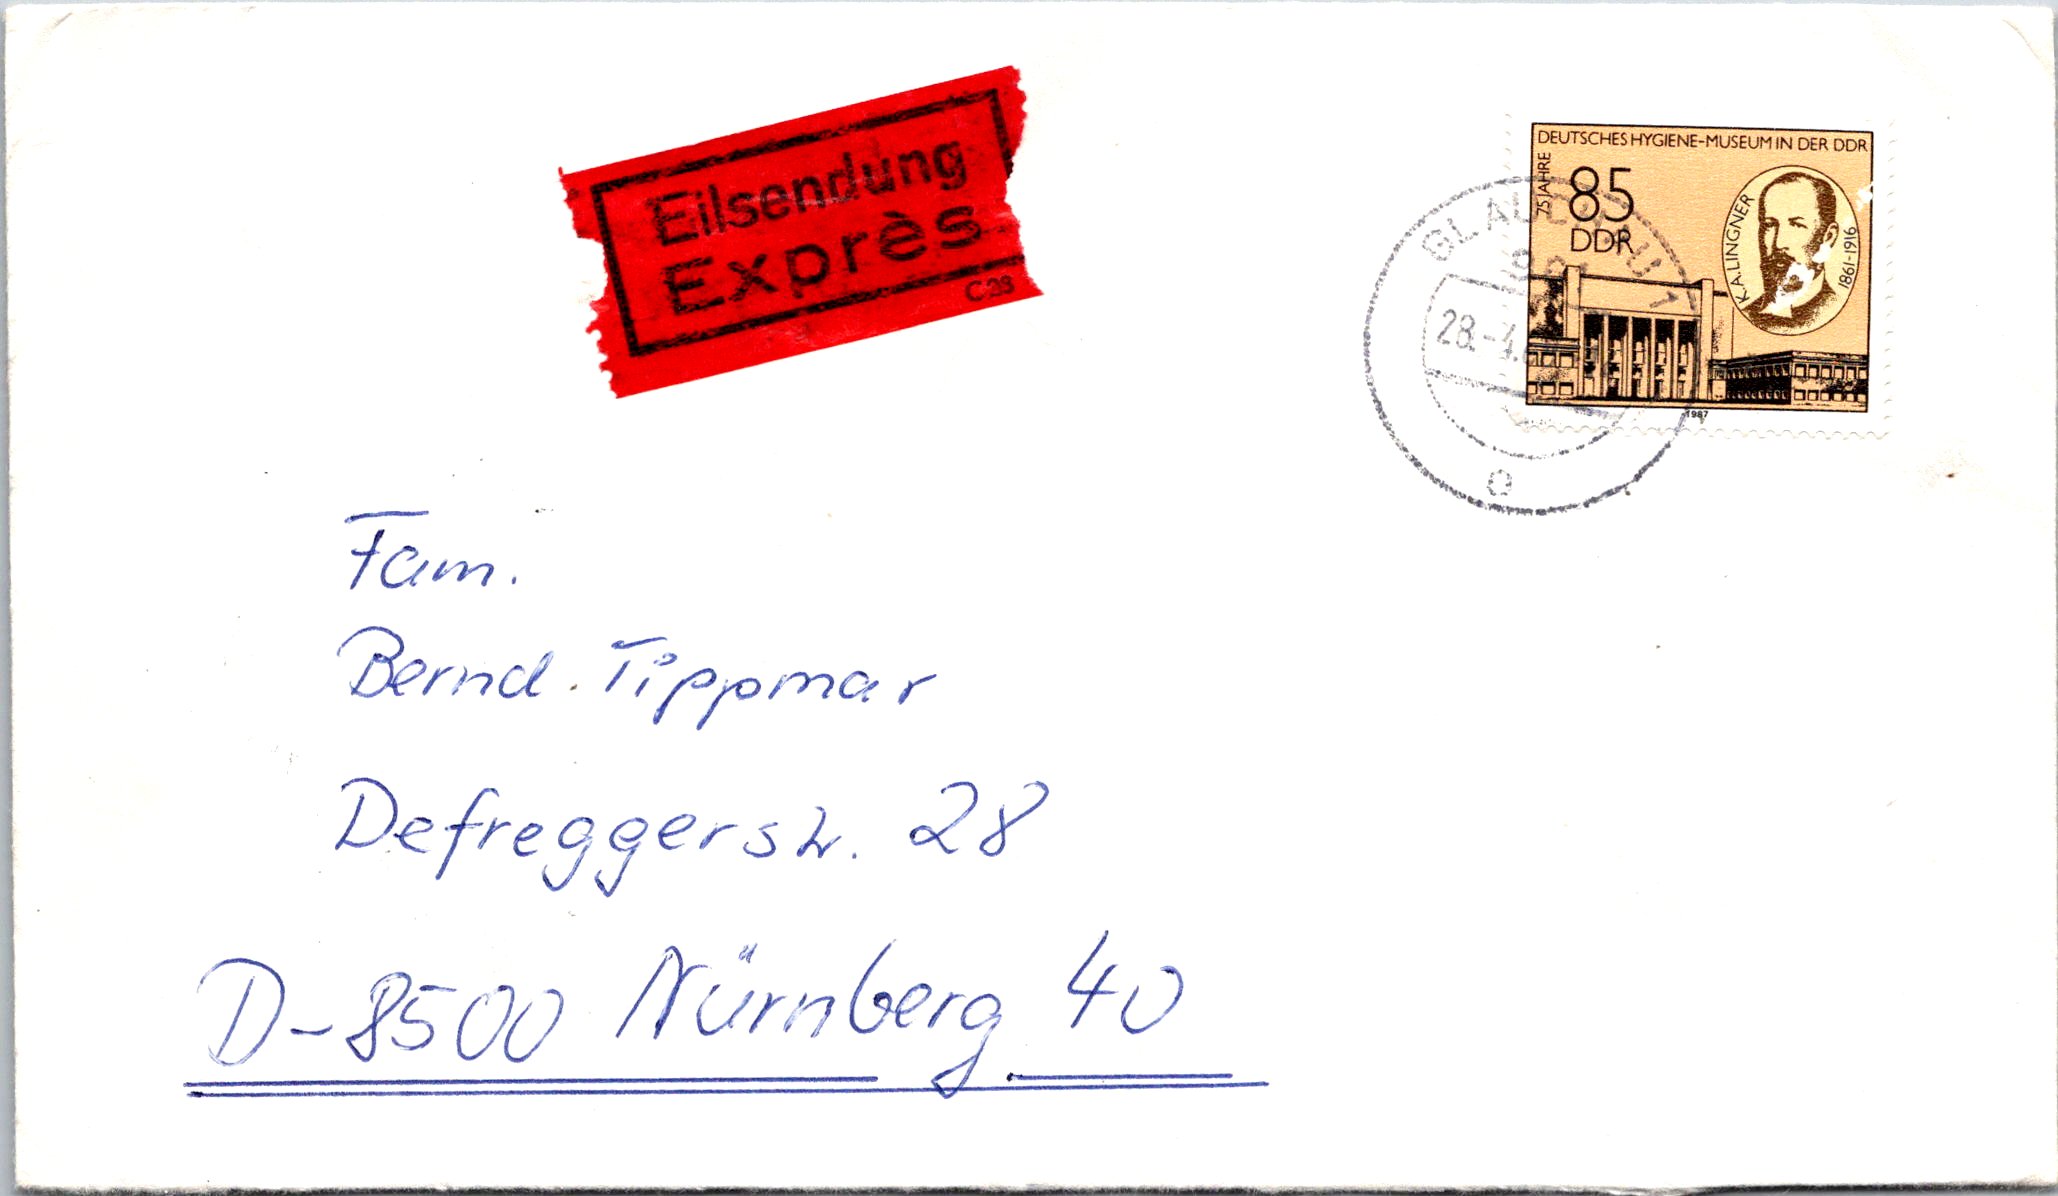 Eilsendung
Exprès
C 28
DEUTSCHES HYGIENE-MUSEUM IN DER DDR
75 JAHRE
85
DDR
K.A.LINGNER
1861-1916
1987
GLAUCHAU 1
28.-4.
e
Fam.
Bernd Tippmar
Defreggerstr. 28
D-8500 Nürnberg 40